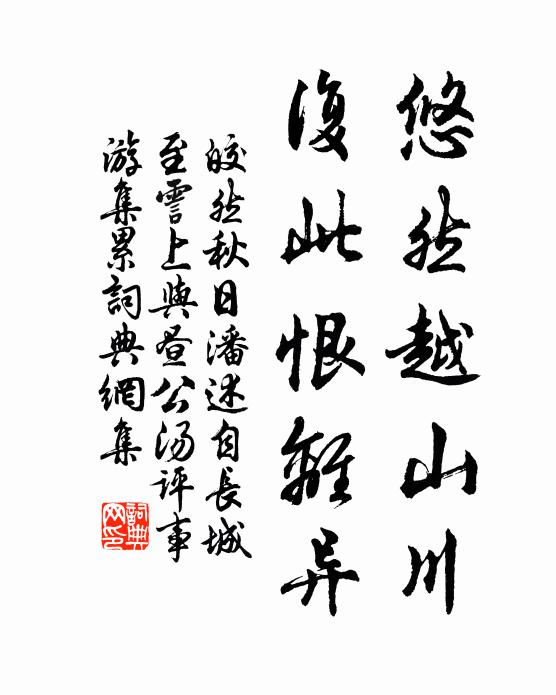 悠然越山川
復此恨離异
皎然秋日潘述自長城
至霅上與昼公湯評事
游集累詞典網集
詞典网印